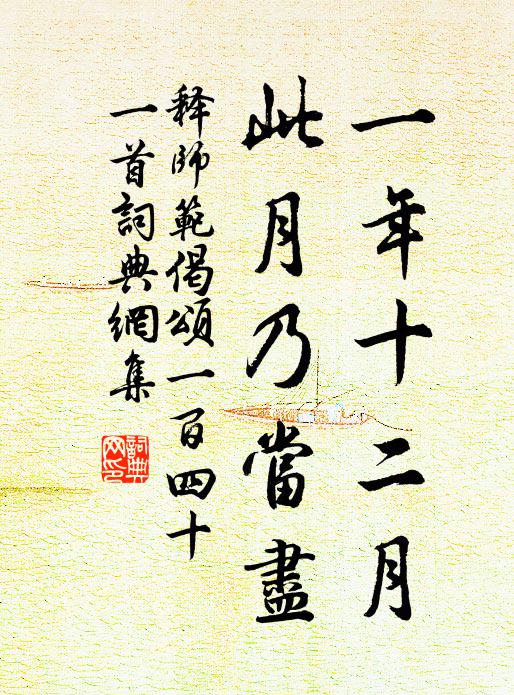 一年十二月
此月乃當盡
释師範偈頌一百四十
一首詞典網集
詞典网印